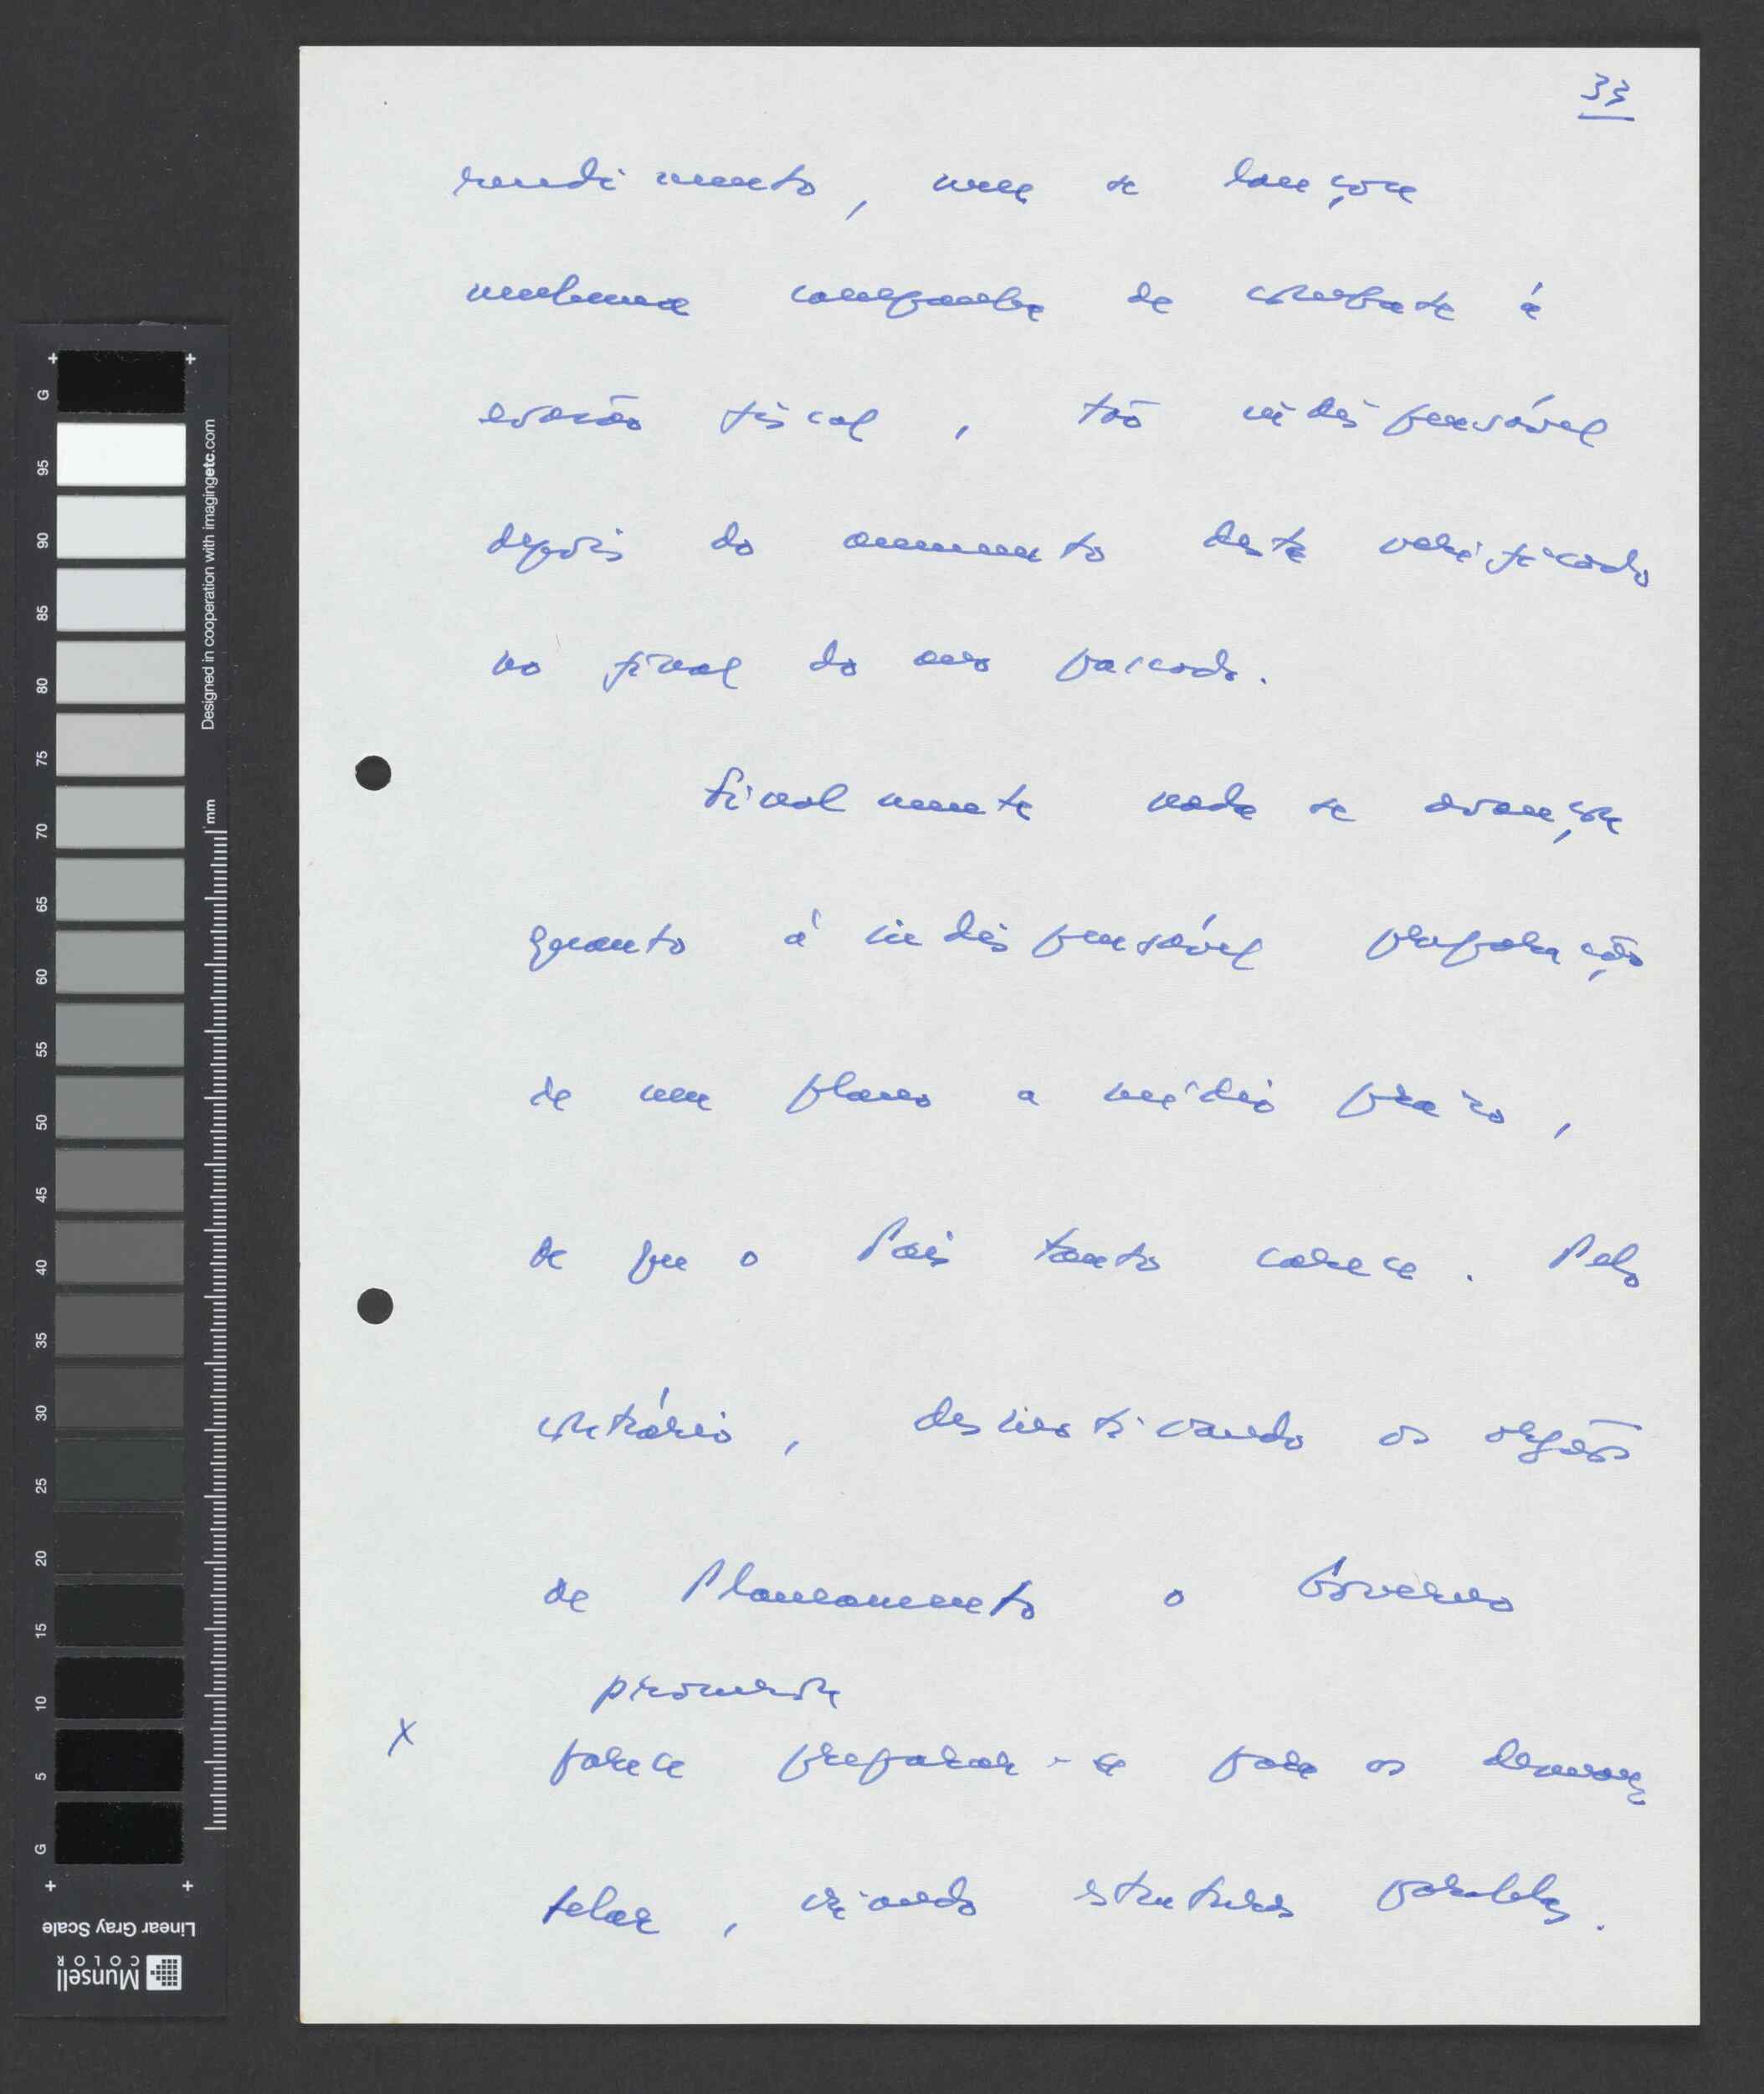 33
rendimento, nem se lançou
nenhuma campanha de combate à
evasão fiscal, tão indispensável
depois do aumento deste verificado
no final do ano passado.
Finalmente nada se avançou
quanto à indispensável preparação
de um plano a médio prazo,
de que o País tanto carece. Pelo
contrário, desmotivando os orgãos
de Planeamento o Governo
procura
X parece preparar-se para os desman
telar, criando estruturas paralelas.
G
95
90
85
80
75
70
65
60
55
50
45
40
35
30
25
20
15
10
5
G
Designed in cooperation with imagingetc.com
mm
Linear Gray Scale
Munsell
COLOR